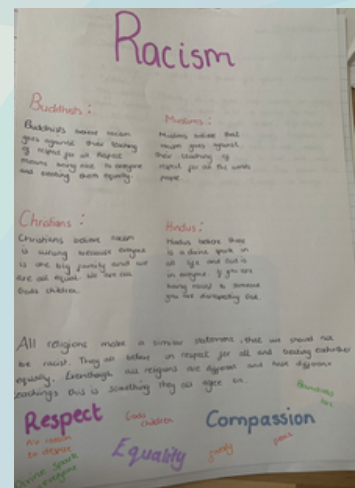 Racism
Buddhists :
Buddhists believe racism
goes against their teaching
of respect for all. Respect
means being nice to everyone
and treating them equally.
Muslims :
Muslims believe that
racism goes against
their teaching of
respect for all the worlds
people.
Christians :
Christians believe racism
is wrong because everyone
is one big family and we
are all equal. We are all
Gods children.
Hindus :
Hindus believe there
is a divine spark in
all life and God is
in everyone. If you are
being racist to someone
you are disrespecting God.
All religions make a similar statement, that we should not
be racist. They all believe in respect for all and treating eachother
equally. Eventhough all religions are different and have different
teachings this is something they all agree on.
Respect
Gods
children
Compassion
no reason
to despise
Equality
Divine Spark
in everyone